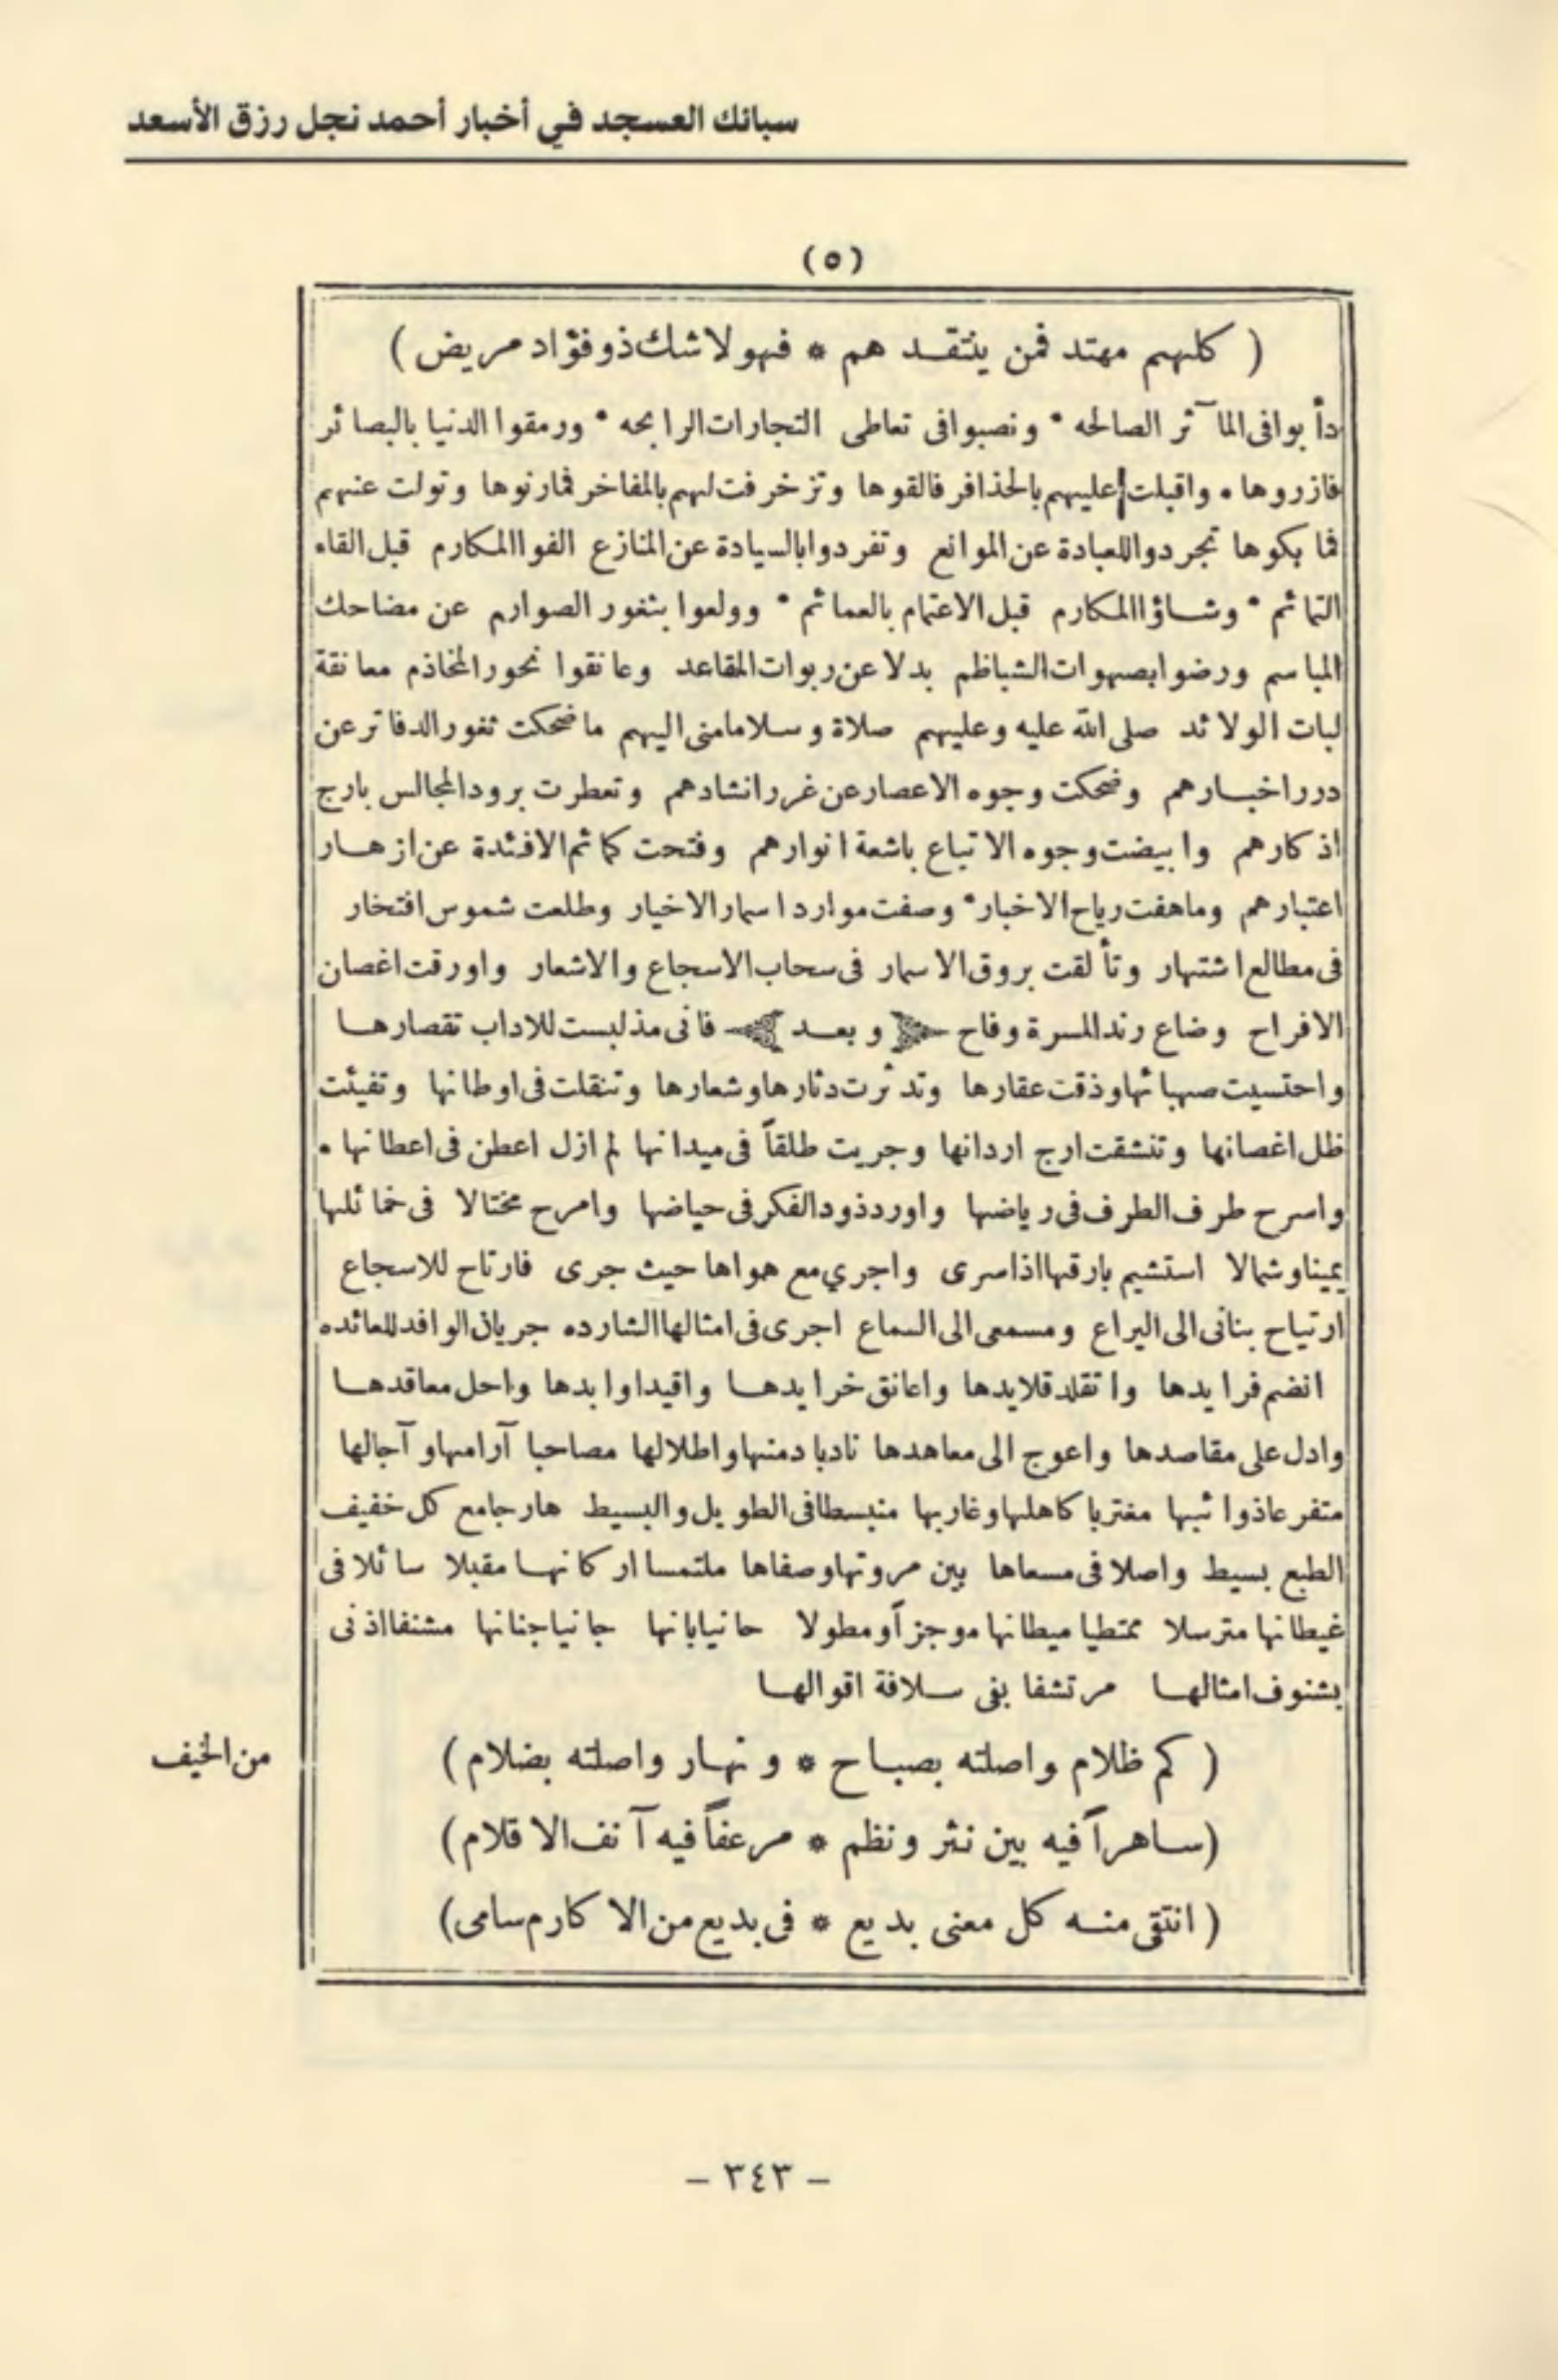 سبائك العسجد في أخبار أحمد نجل رزق الأسعد
(٥)
( كلهم مهتد فمن ينتقـد هم * فهو لا شك ذو فؤاد مريض )
دأ بوا فى المآ ثر الصالحه * ونصبوا فى تعاطى التجارات الرابحه * ورمقوا الدنيا بالبصائر
فازروها * واقبلت عليهم بالحذافر فالقوها وتزخرفت لهم بالمفاخر فمارنوها وتولت عنهم
فما بكوها تجردوا للعبادة عن الموانع وتفردوا بالسيادة عن المنازع الفوا المكارم قبل القاء
التمائم * وشـاؤا المكارم قبل الاعتمام بالعمائم * وولعوا بثغور الصوارم عن مضاحك
المباسم ورضوا بصهوات الشياظم بدلا عن ربوات المقاعد وعانقوا نحور المخاذم معانقة
لبات الولائد صلى الله عليه وعليهم صلاة وسلاما منى اليهم ما ضحكت ثغور الدفاتر عن
درر اخبـارهم وضحكت وجوه الاعصار عن غرر انشادهم وتعطرت برود المجالس بارج
اذكارهم وابيضت وجوه الاتباع باشعة انوارهم وفتحت كمائم الافئدة عن ازهـار
اعتبارهم وما هفت رياح الاخبار * وصفت موارد اسمار الاخيار وطلعت شموس افتخار
فى مطالع اشتهار وتألقت بروق الاسمار فى سحاب الاسجاع والاشعار واورقت اغصان
الافراح وضاع رند المسرة وفاح وبعـد فانى مذ لبست للاداب تقصارهـا
واحتسيت صهبائها وذقت عقارها وتدثرت دثارها وشعارها وتنقلت فى اوطانها وتفيئت
ظل اغصانها وتنشقت ارج اردانها وجريت طلقاً فى ميدانها لم ازل اعطن فى اعطانها *
واسرح طرف الطرف فى رياضها واورد ذود الفكر فى حياضها وامرح مختالا فى خمائلها
يمينا وشمالا استشيم بارقها اذا سرى واجري مع هواها حيث جرى فارتاح للاسجاع
ارتياح بنانى الى اليراع ومسمعى الى السماع اجرى فى امثالها الشارده جريان الوافد للعائده
انضم فرايدها واتقلد قلايدها واعانق خرايدهـا واقيد اوابدها واحل معاقدهـا
وادل على مقاصدها واعوج الى معاهدها نادبا دمنها واطلالها مصاحبا آرامها وآجالها
متفرعا ذوائبها مغتربا كاهلها وغاربها منبسطا فى الطويل والبسيط هارجا مع كل خفيف
الطبع بسيط واصلا فى مسعاها بين مروتها وصفاها ملتمسا اركانهـا مقبلا سائلا فى
غيطانها مترسلا ممتطيا ميطانها موجزاً ومطولا حانيا بانها جانيا جنانها مشنفا اذنى
بشنوف امثالهـا مرتشفا بفى سـلافة اقوالهـا
( كم ظلام واصلته بصبـاح * ونهـار واصلته بضلام )
من الخيف
(سـاهراً فيه بين نثر ونظم * مرعفاً فيه آنف الاقلام )
( انتقى منـه كل معنى بديع * فى بديع من الاكارم سامى)
- ٣٤٣ -